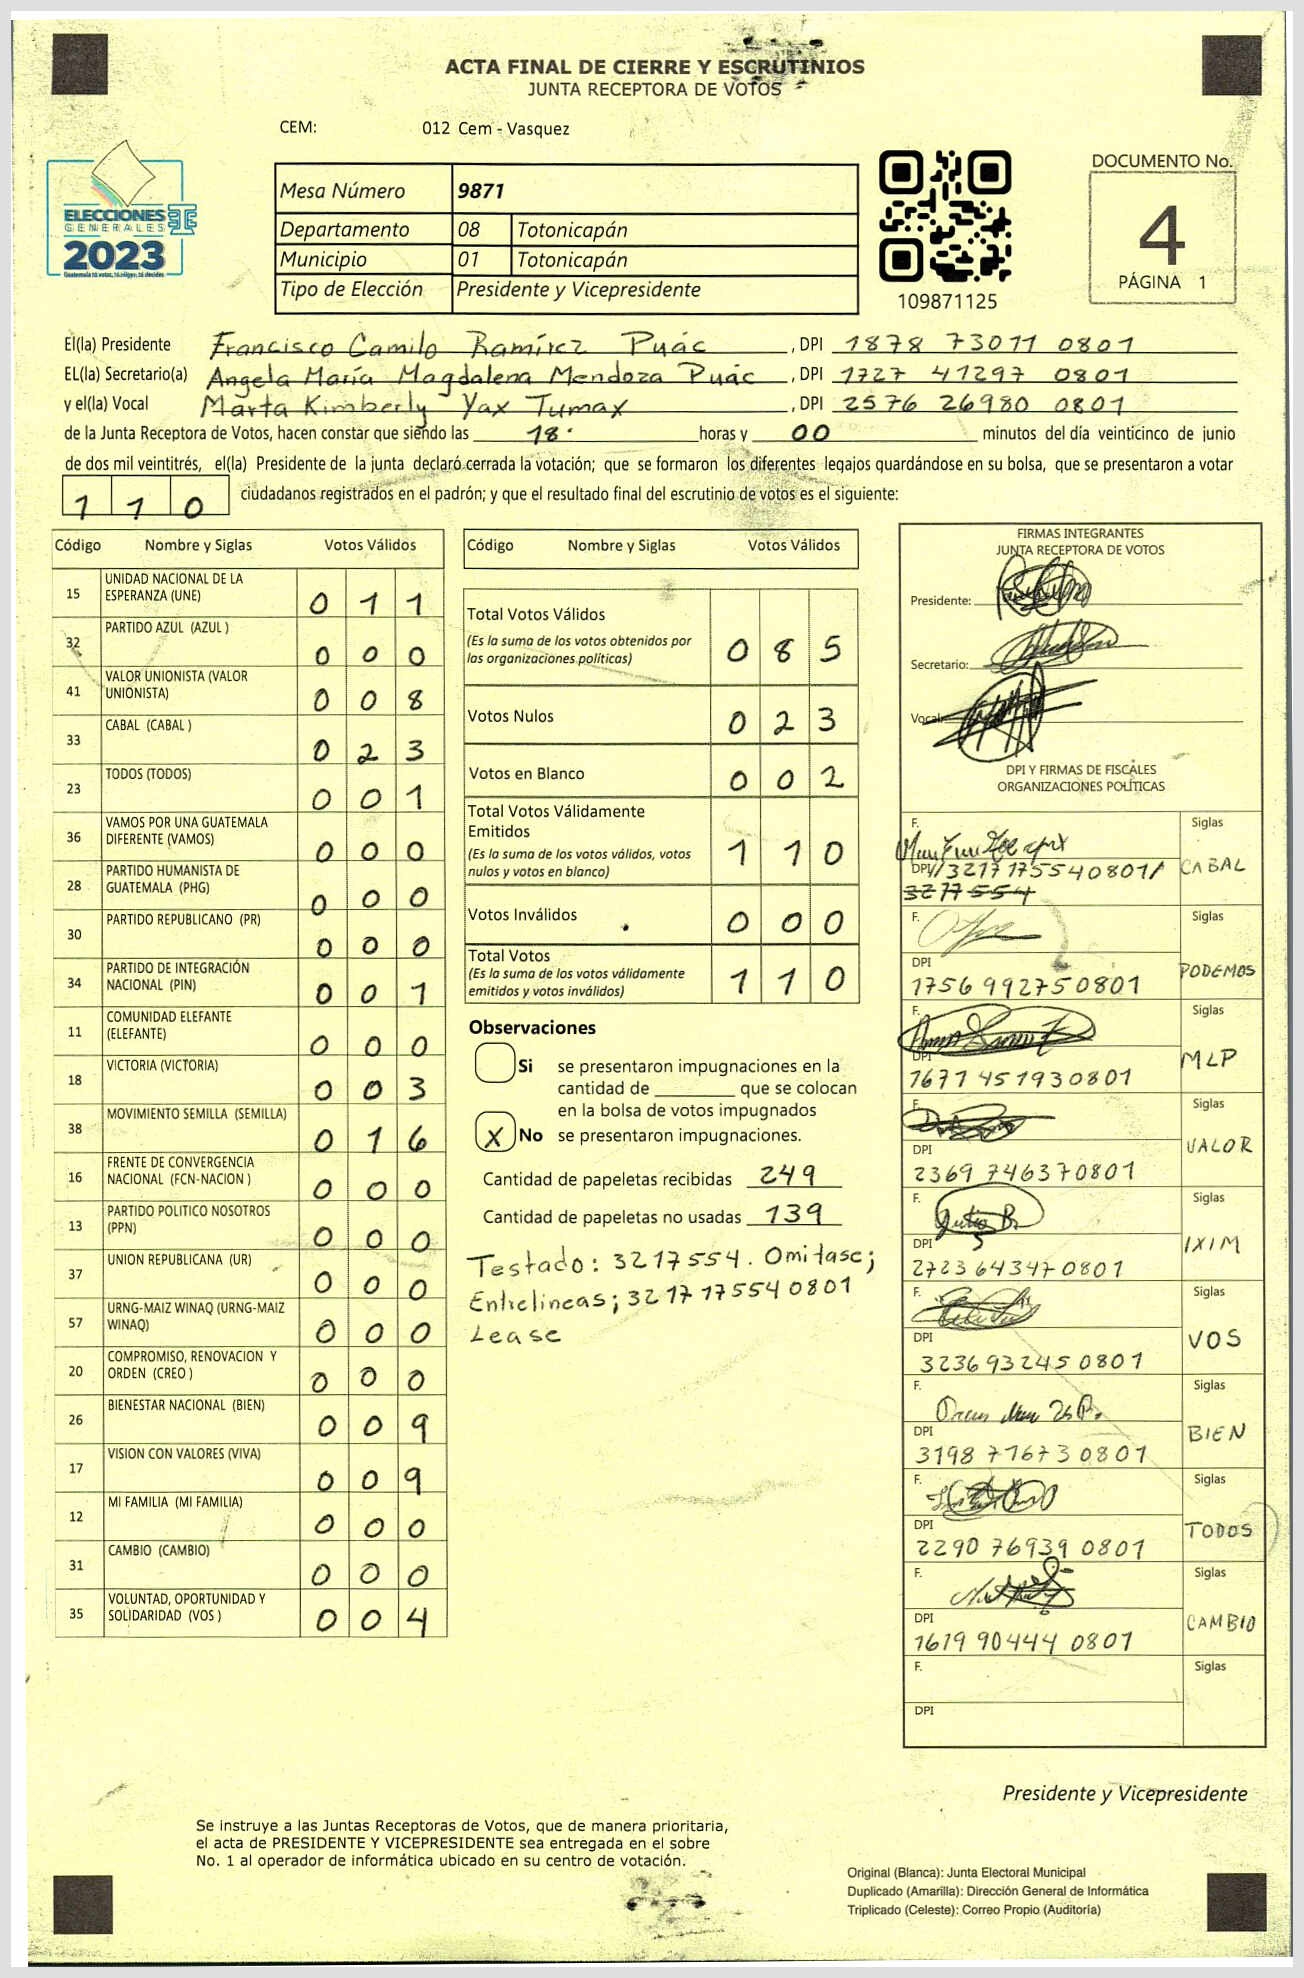 ACTA FINAL DE CIERRE Y ESCRUTINIOS
JUNTA RECEPTORA DE VOTOS
CEM: 012 Cem - Vasquez
ELECCIONES
GENERALES
2023
Guatemala tú votas, tú eliges, tú decides
Mesa Número 9871
Departamento 08 Totonicapán
Municipio 01 Totonicapán
Tipo de Elección Presidente y Vicepresidente
109871125
DOCUMENTO No.
4
PÁGINA 1
El(la) Presidente Francisco Camilo Ramírez Puác , DPI 1878 73011 0801
EL(la) Secretario(a) Angela María Magdalena Mendoza Puác , DPI 1727 41297 0801
y el(la) Vocal Marta Kimberly Yax Tumax , DPI 2576 26980 0801
de la Junta Receptora de Votos, hacen constar que siendo las 18 horas y 00 minutos del día veinticinco de junio
de dos mil veintitrés, el(la) Presidente de la junta declaró cerrada la votación; que se formaron los diferentes legajos guardándose en su bolsa, que se presentaron a votar
110 ciudadanos registrados en el padrón; y que el resultado final del escrutinio de votos es el siguiente:
Código Nombre y Siglas Votos Válidos
15 UNIDAD NACIONAL DE LA ESPERANZA (UNE) 0 1 1
32 PARTIDO AZUL (AZUL ) 0 0 0
41 VALOR UNIONISTA (VALOR UNIONISTA) 0 0 8
33 CABAL (CABAL ) 0 2 3
23 TODOS (TODOS) 0 0 1
36 VAMOS POR UNA GUATEMALA DIFERENTE (VAMOS) 0 0 0
28 PARTIDO HUMANISTA DE GUATEMALA (PHG) 0 0 0
30 PARTIDO REPUBLICANO (PR) 0 0 0
34 PARTIDO DE INTEGRACIÓN NACIONAL (PIN) 0 0 1
11 COMUNIDAD ELEFANTE (ELEFANTE) 0 0 0
18 VICTORIA (VICTORIA) 0 0 3
38 MOVIMIENTO SEMILLA (SEMILLA) 0 1 6
16 FRENTE DE CONVERGENCIA NACIONAL (FCN-NACION ) 0 0 0
13 PARTIDO POLITICO NOSOTROS (PPN) 0 0 0
37 UNION REPUBLICANA (UR) 0 0 0
57 URNG-MAIZ WINAQ (URNG-MAIZ WINAQ) 0 0 0
20 COMPROMISO, RENOVACION Y ORDEN (CREO ) 0 0 0
26 BIENESTAR NACIONAL (BIEN) 0 0 9
17 VISION CON VALORES (VIVA) 0 0 9
12 MI FAMILIA (MI FAMILIA) 0 0 0
31 CAMBIO (CAMBIO) 0 0 0
35 VOLUNTAD, OPORTUNIDAD Y SOLIDARIDAD (VOS ) 0 0 4
Código Nombre y Siglas Votos Válidos
Total Votos Válidos 0 8 5
(Es la suma de los votos obtenidos por
las organizaciones políticas)
Votos Nulos 0 2 3
Votos en Blanco 0 0 2
Total Votos Válidamente
Emitidos 1 1 0
(Es la suma de los votos válidos, votos
nulos y votos en blanco)
Votos Inválidos 0 0 0
Total Votos 1 1 0
(Es la suma de los votos válidamente
emitidos y votos inválidos)
Observaciones
Si se presentaron impugnaciones en la
cantidad de ________ que se colocan
en la bolsa de votos impugnados
X No se presentaron impugnaciones.
Cantidad de papeletas recibidas 249
Cantidad de papeletas no usadas 139
Testado: 3217554. Omitase;
Entrelineas; 3217 17554 0801
Lease
FIRMAS INTEGRANTES
JUNTA RECEPTORA DE VOTOS
Presidente:
Secretario:
Vocal:
DPI Y FIRMAS DE FISCALES
ORGANIZACIONES POLÍTICAS
F. Siglas
DPI 3217 17554 0801 CABAL
3217554
F. Siglas
DPI
1756 99275 0801 PODEMOS
F. Siglas
DPI
1671 45193 0801 MLP
F. Siglas
DPI
2369 74637 0801 VALOR
F. Siglas
DPI
2723 64347 0801 IXIM
F. Siglas
DPI
3236 93245 0801 VOS
F. Siglas
DPI
3198 71673 0801 BIEN
F. Siglas
DPI
2290 76939 0801 TODOS
F. Siglas
DPI
1619 90444 0801 CAMBIO
F. Siglas
DPI
Presidente y Vicepresidente
Se instruye a las Juntas Receptoras de Votos, que de manera prioritaria,
el acta de PRESIDENTE Y VICEPRESIDENTE sea entregada en el sobre
No. 1 al operador de informática ubicado en su centro de votación.
Original (Blanca): Junta Electoral Municipal
Duplicado (Amarilla): Dirección General de Informática
Triplicado (Celeste): Correo Propio (Auditoría)